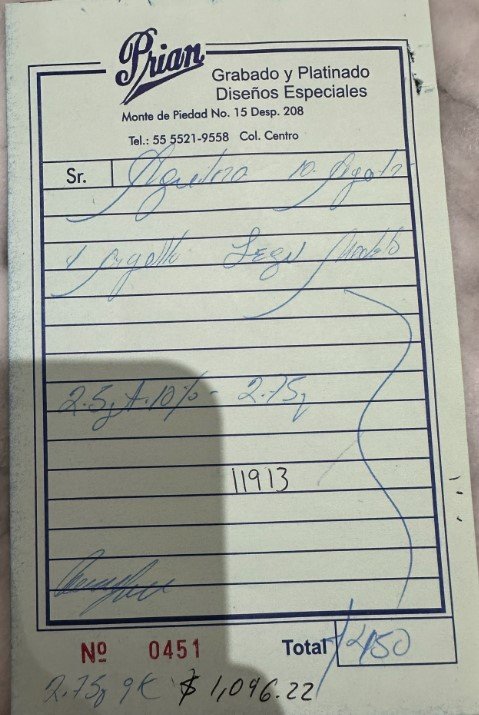 Prian
Grabado y Platinado
Diseños Especiales
Monte de Piedad No. 15 Desp. 208
Tel.: 55 5521-9558 Col. Centro
Sr.
1 Legn Modelo
2.5g + 10% = 2.75g
11913
Nº 0451 Total $ 450
2.75g 9K $ 1,096.22